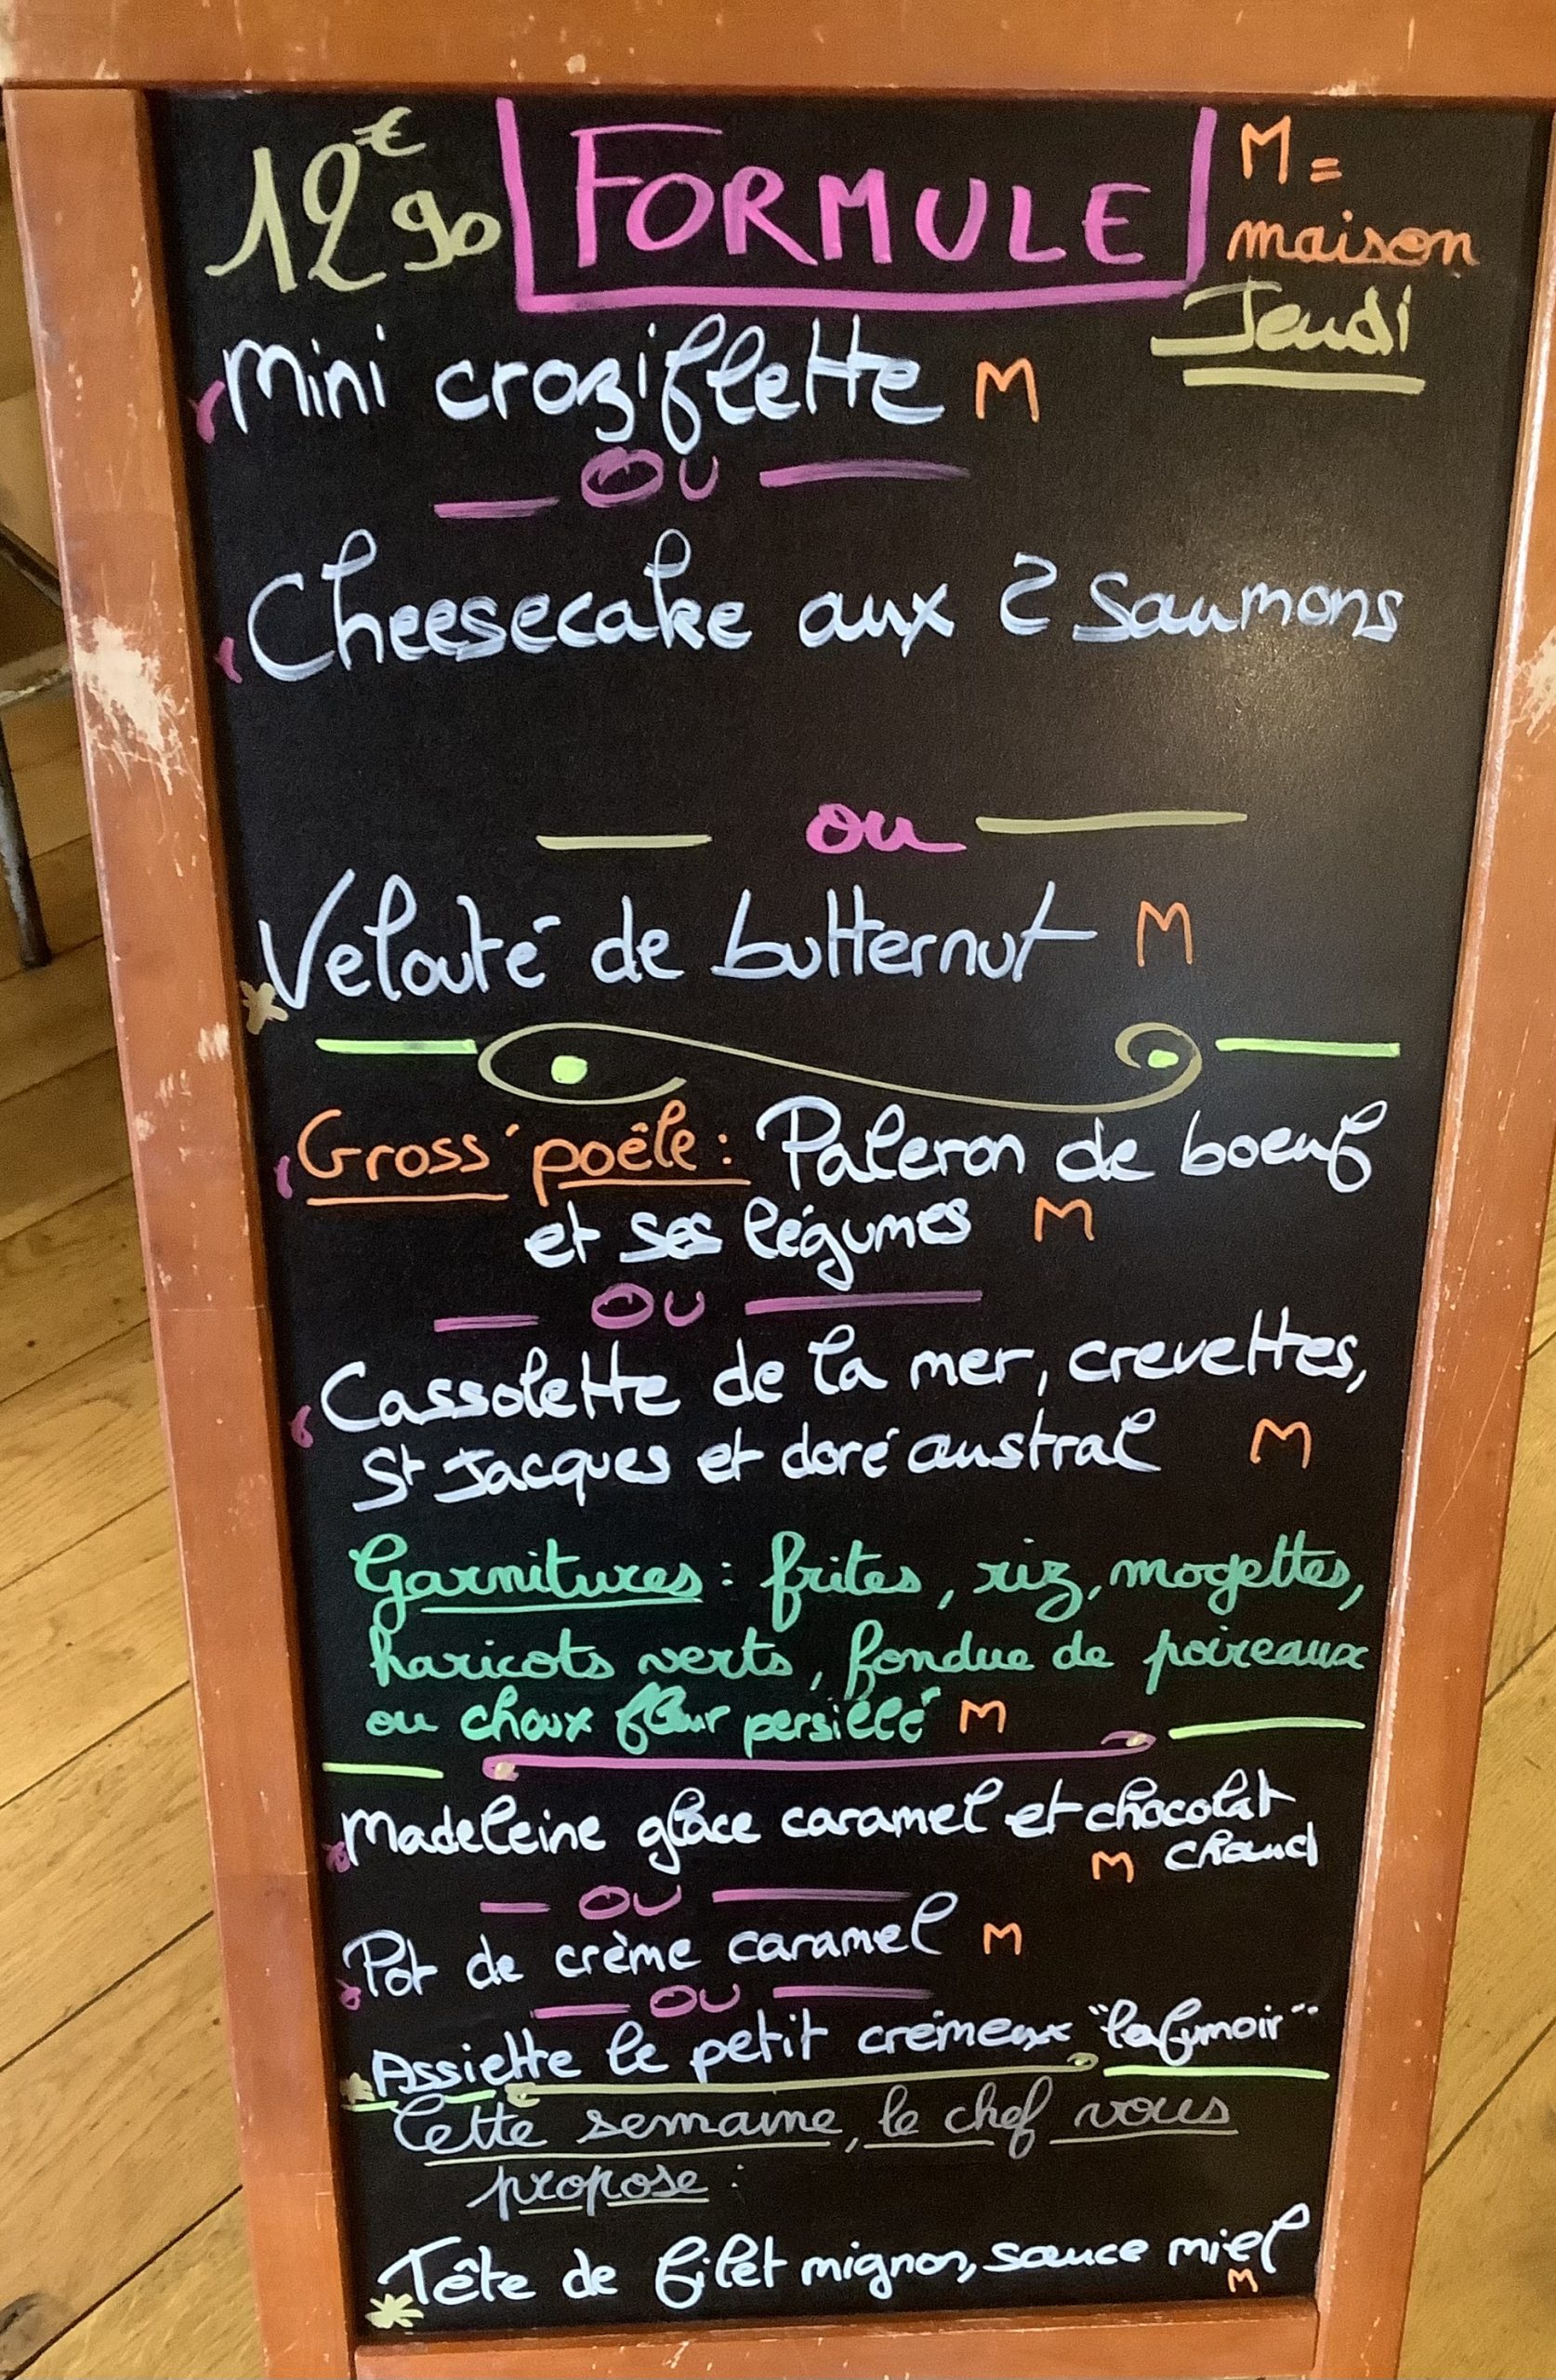 12€90 FORMULE M =
maison
Jeudi
Mini croziflette M
OU
Cheesecake aux 2 saumons
ou
Velouté de butternut M
Gross' poêle : Paleron de boeuf
et ses légumes M
OU
Cassolette de la mer, crevettes,
St Jacques et doré austral M
Garnitures : frites, riz, mogettes,
haricots verts, fondue de poireaux
ou choux fleur persillé M
Madeleine glace caramel et chocolat
M chaud
OU
Pot de crème caramel M
OU
Assiette le petit crémeux "lafumoir"
Cette semaine, le chef vous
propose :
Tête de filet mignon, sauce miel
M